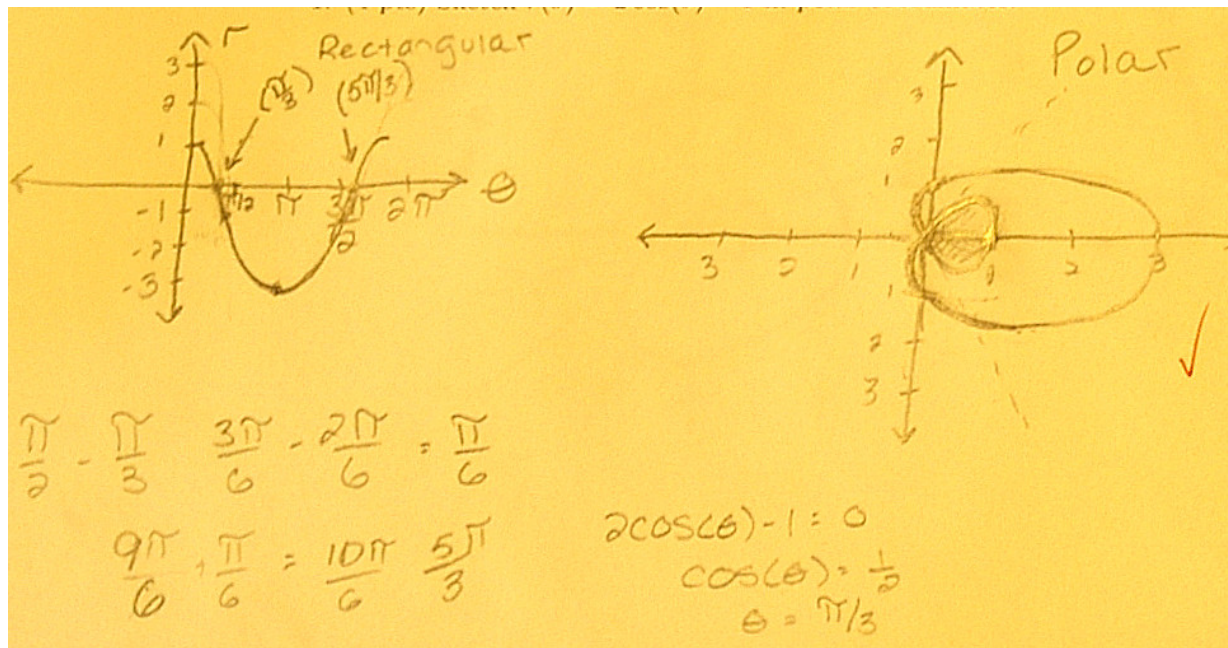 r Rectangular
3
2
1
(π/3) (5π/3)
π/2 π 3π/2 2π θ
-1
-2
-3
Polar
3
2
1
3 2 1 1 2 3
1
2
3
π/2 - π/3 3π/6 - 2π/6 = π/6
9π/6 + π/6 = 10π/6 5π/3
2cos(θ)-1 = 0
cos(θ) = 1/2
θ = π/3